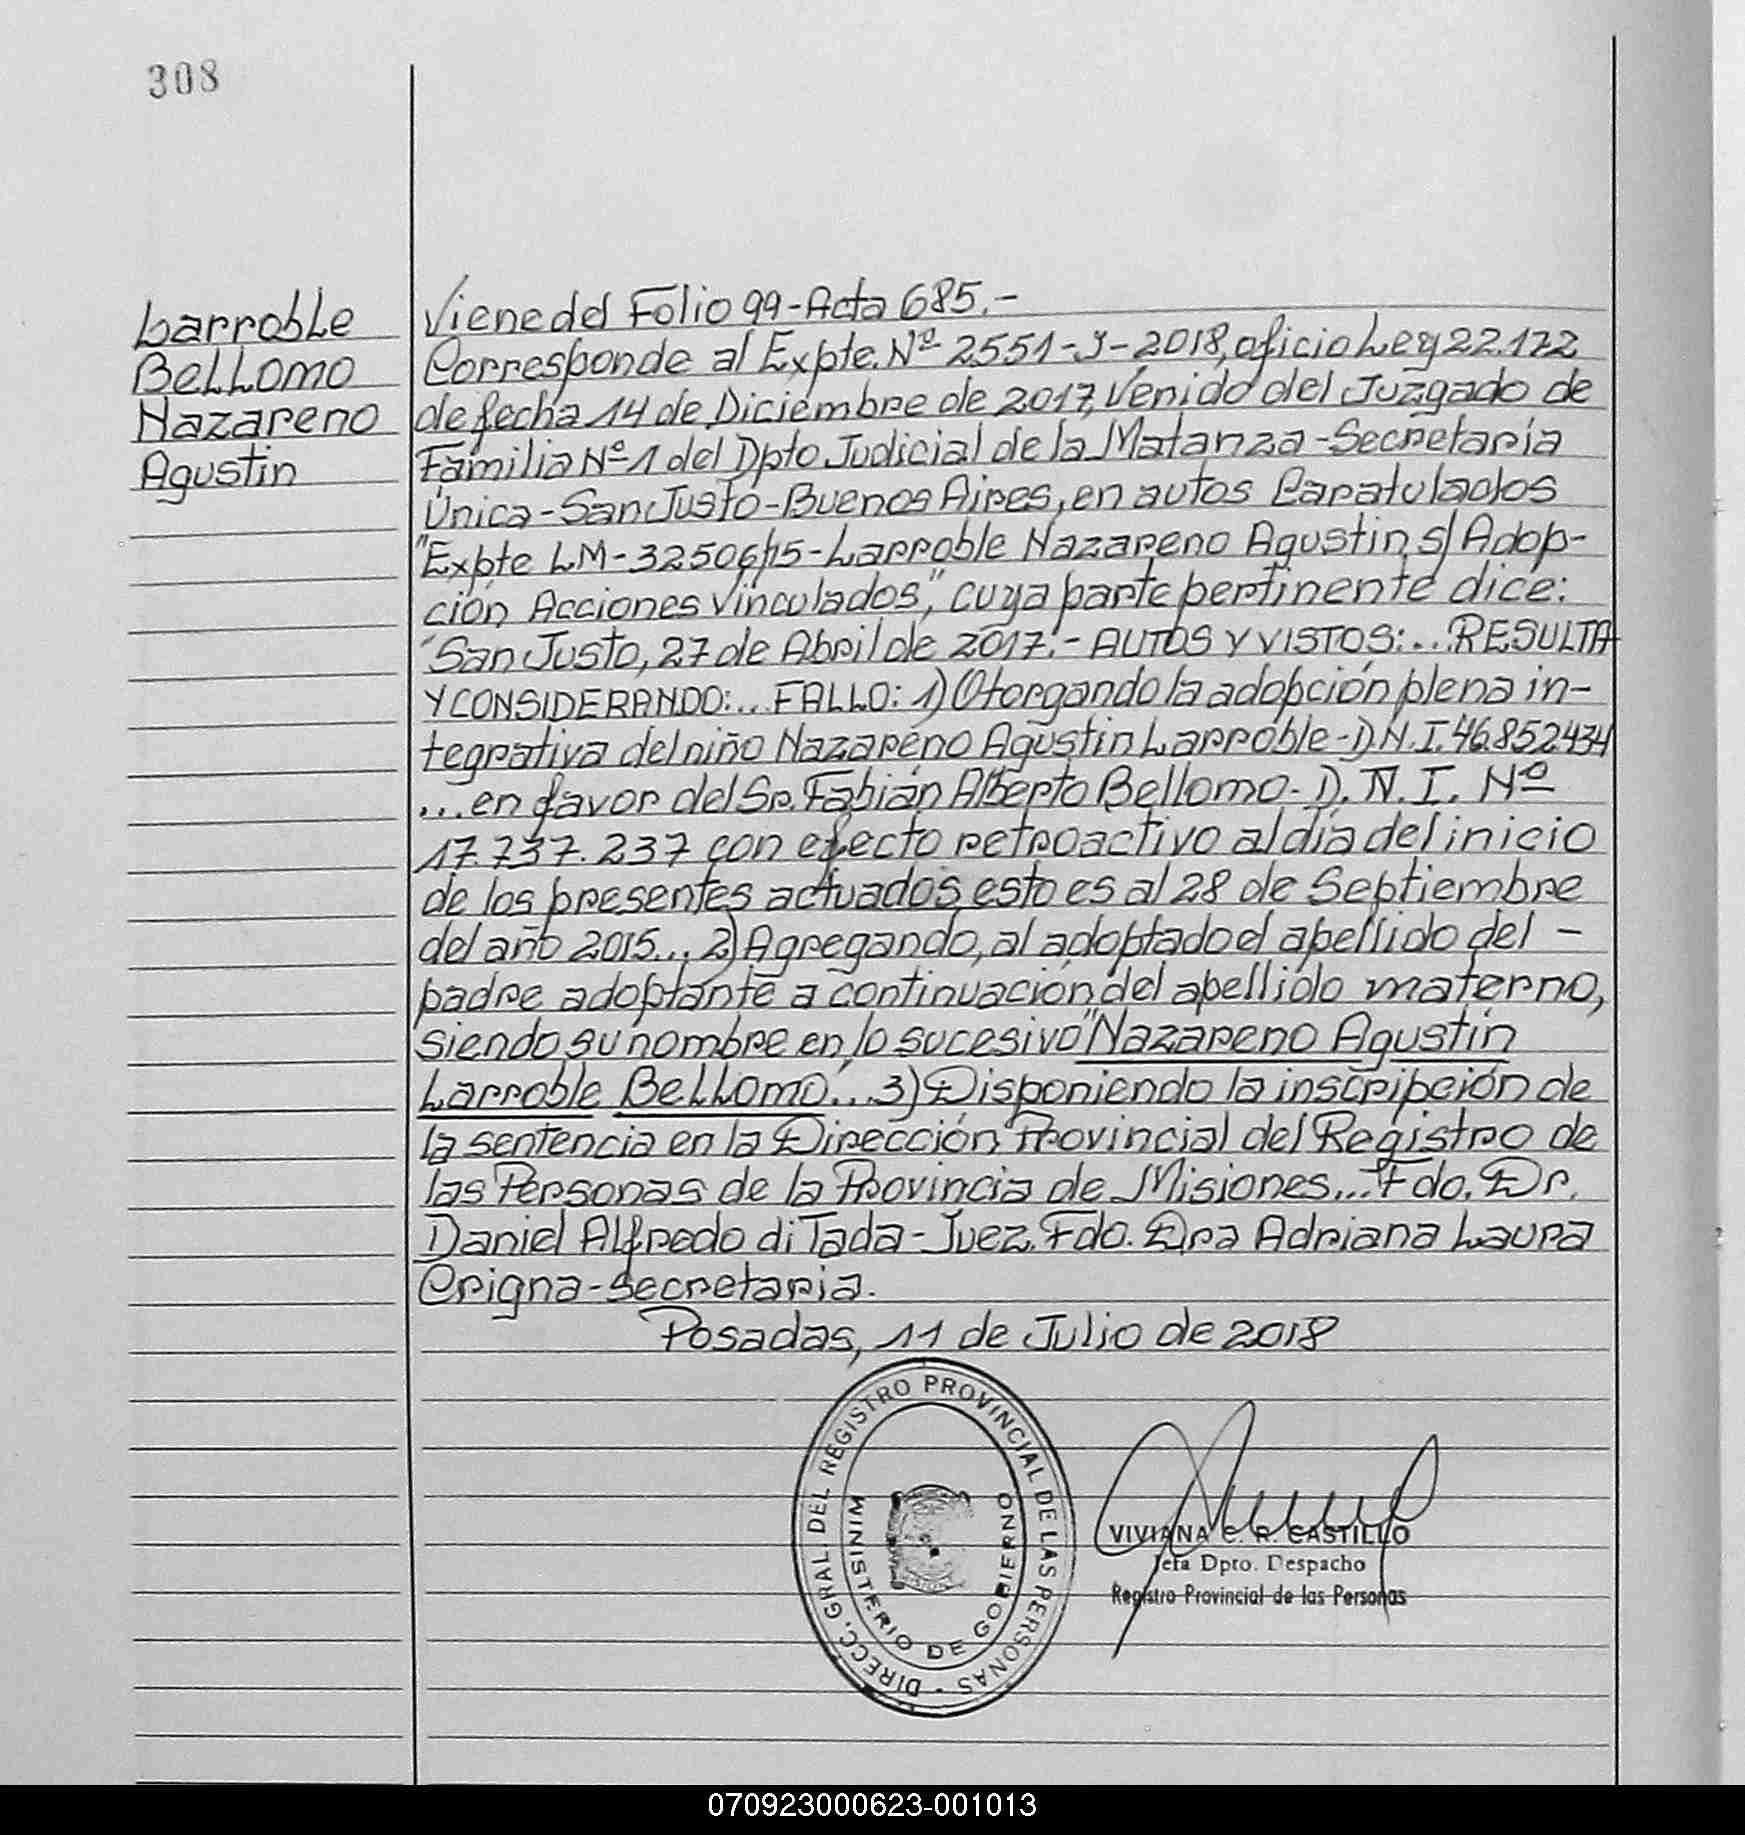 308
Larroble
Bellomo
Nazareno
Agustin
Viene del Folio 99-Acta 685.-
Corresponde al Expte. Nº 2551-J-2018, oficio Ley 22.172
de fecha 14 de Diciembre de 2017, Venido del Juzgado de
Familia Nº 1 del Dpto Judicial de la Matanza-Secretaría
Única-San Justo-Buenos Aires, en autos Caratulados
"Expte LM-32506/15-Larroble Nazareno Agustin s/ Adop-
ción Acciones Vinculados", cuya parte pertinente dice:
"San Justo, 27 de Abril de 2017.- AUTOS Y VISTOS:...RESULTA
Y CONSIDERANDO:... FALLO: 1) Otorgando la adopción plena in-
tegrativa del niño Nazareno Agustin Larroble-D.N.I. 46.852434
...en favor del Sr. Fabián Alberto Bellomo-D.N.I. Nº
17.737.237 con efecto retroactivo al día del inicio
de los presentes actuados esto es al 28 de Septiembre
del año 2015... 2) Agregando, al adoptado el apellido del -
padre adoptante a continuación del apellido materno,
siendo su nombre en lo sucesivo "Nazareno Agustín
Larroble Bellomo... 3) Disponiendo la inscripción de
la sentencia en la Dirección Provincial del Registro de
las Personas de la Provincia de Misiones... Fdo. Dr.
Daniel Alfredo di Tada-Juez. Fdo. Dra Adriana Laura
Crigna-Secretaria.
Posadas, 11 de Julio de 2018
DIRECC. GRAL. DEL REGISTRO PROVINCIAL DE LAS PERSONAS -
MINISTERIO DE GOBIERNO
VIVIANA C. R. CASTILLO
Jefa Dpto. Despacho
Registro Provincial de las Personas
070923000623-001013